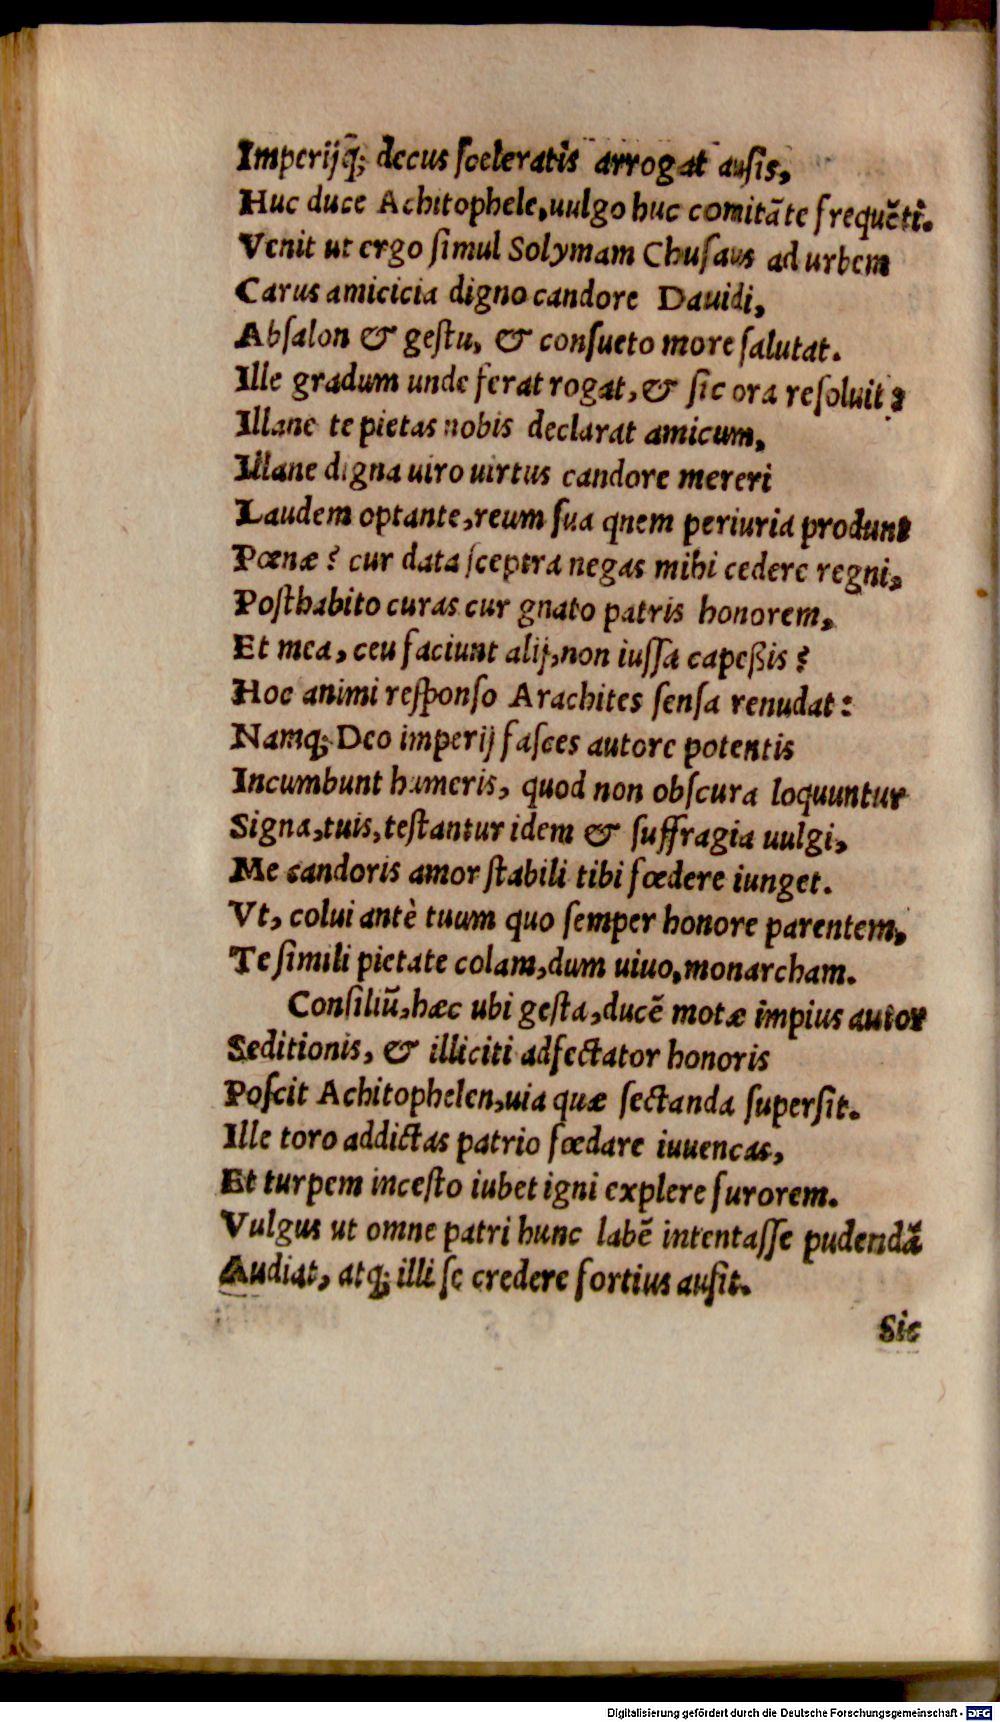 Imperijq̃; decus ſceleratis arrogat auſis,
Huc duce Achitophele, uulgo huc comitāte frequẽti.
Venit ut ergo ſimul Solymam Chuſaus ad urbem
Carus amicicia digno candore Dauidi,
Abſalon & geſtu, & conſueto more ſalutat.
Ille gradum unde ferat rogat, & ſic ora reſoluit:
Illane te pietas nobis declarat amicum,
Illane digna uiro uirtus candore mereri
Laudem optante, reum ſua qnem periuria produnt
Pœnæ? cur data ſceptra negas mihi cedere regni,
Poſthabito curas cur gnato patris honorem,
Et mea, ceu faciunt alij, non iuſſa capeßis?
Hoc animi reſponſo Arachites ſenſa renudat:
Namq; Deo imperij faſces autore potentis
Incumbunt humeris, quod non obſcura loquuntur
Signa, tuis, teſtantur idem & ſuffragia uulgi,
Me candoris amor ſtabili tibi fœdere iunget.
Vt, colui antè tuum quo ſemper honore parentem,
Te ſimili pietate colam, dum uiuo, monarcham.
Conſiliũ, hæc ubi geſta, ducẽ motæ impius autor
Seditionis, & illiciti adfectator honoris
Poſcit Achitophelen, uia quæ ſectanda ſuperſit.
Ille toro addictas patrio fœdare iuuencas,
Et turpem inceſto iubet igni explere furorem.
Vulgus ut omne patri hunc labẽ intentaſſe pudendā
Audiat, atq; illi ſe credere fortius auſit.
Sic
Digitalisierung gefördert durch die Deutsche Forschungsgemeinschaft - DFG